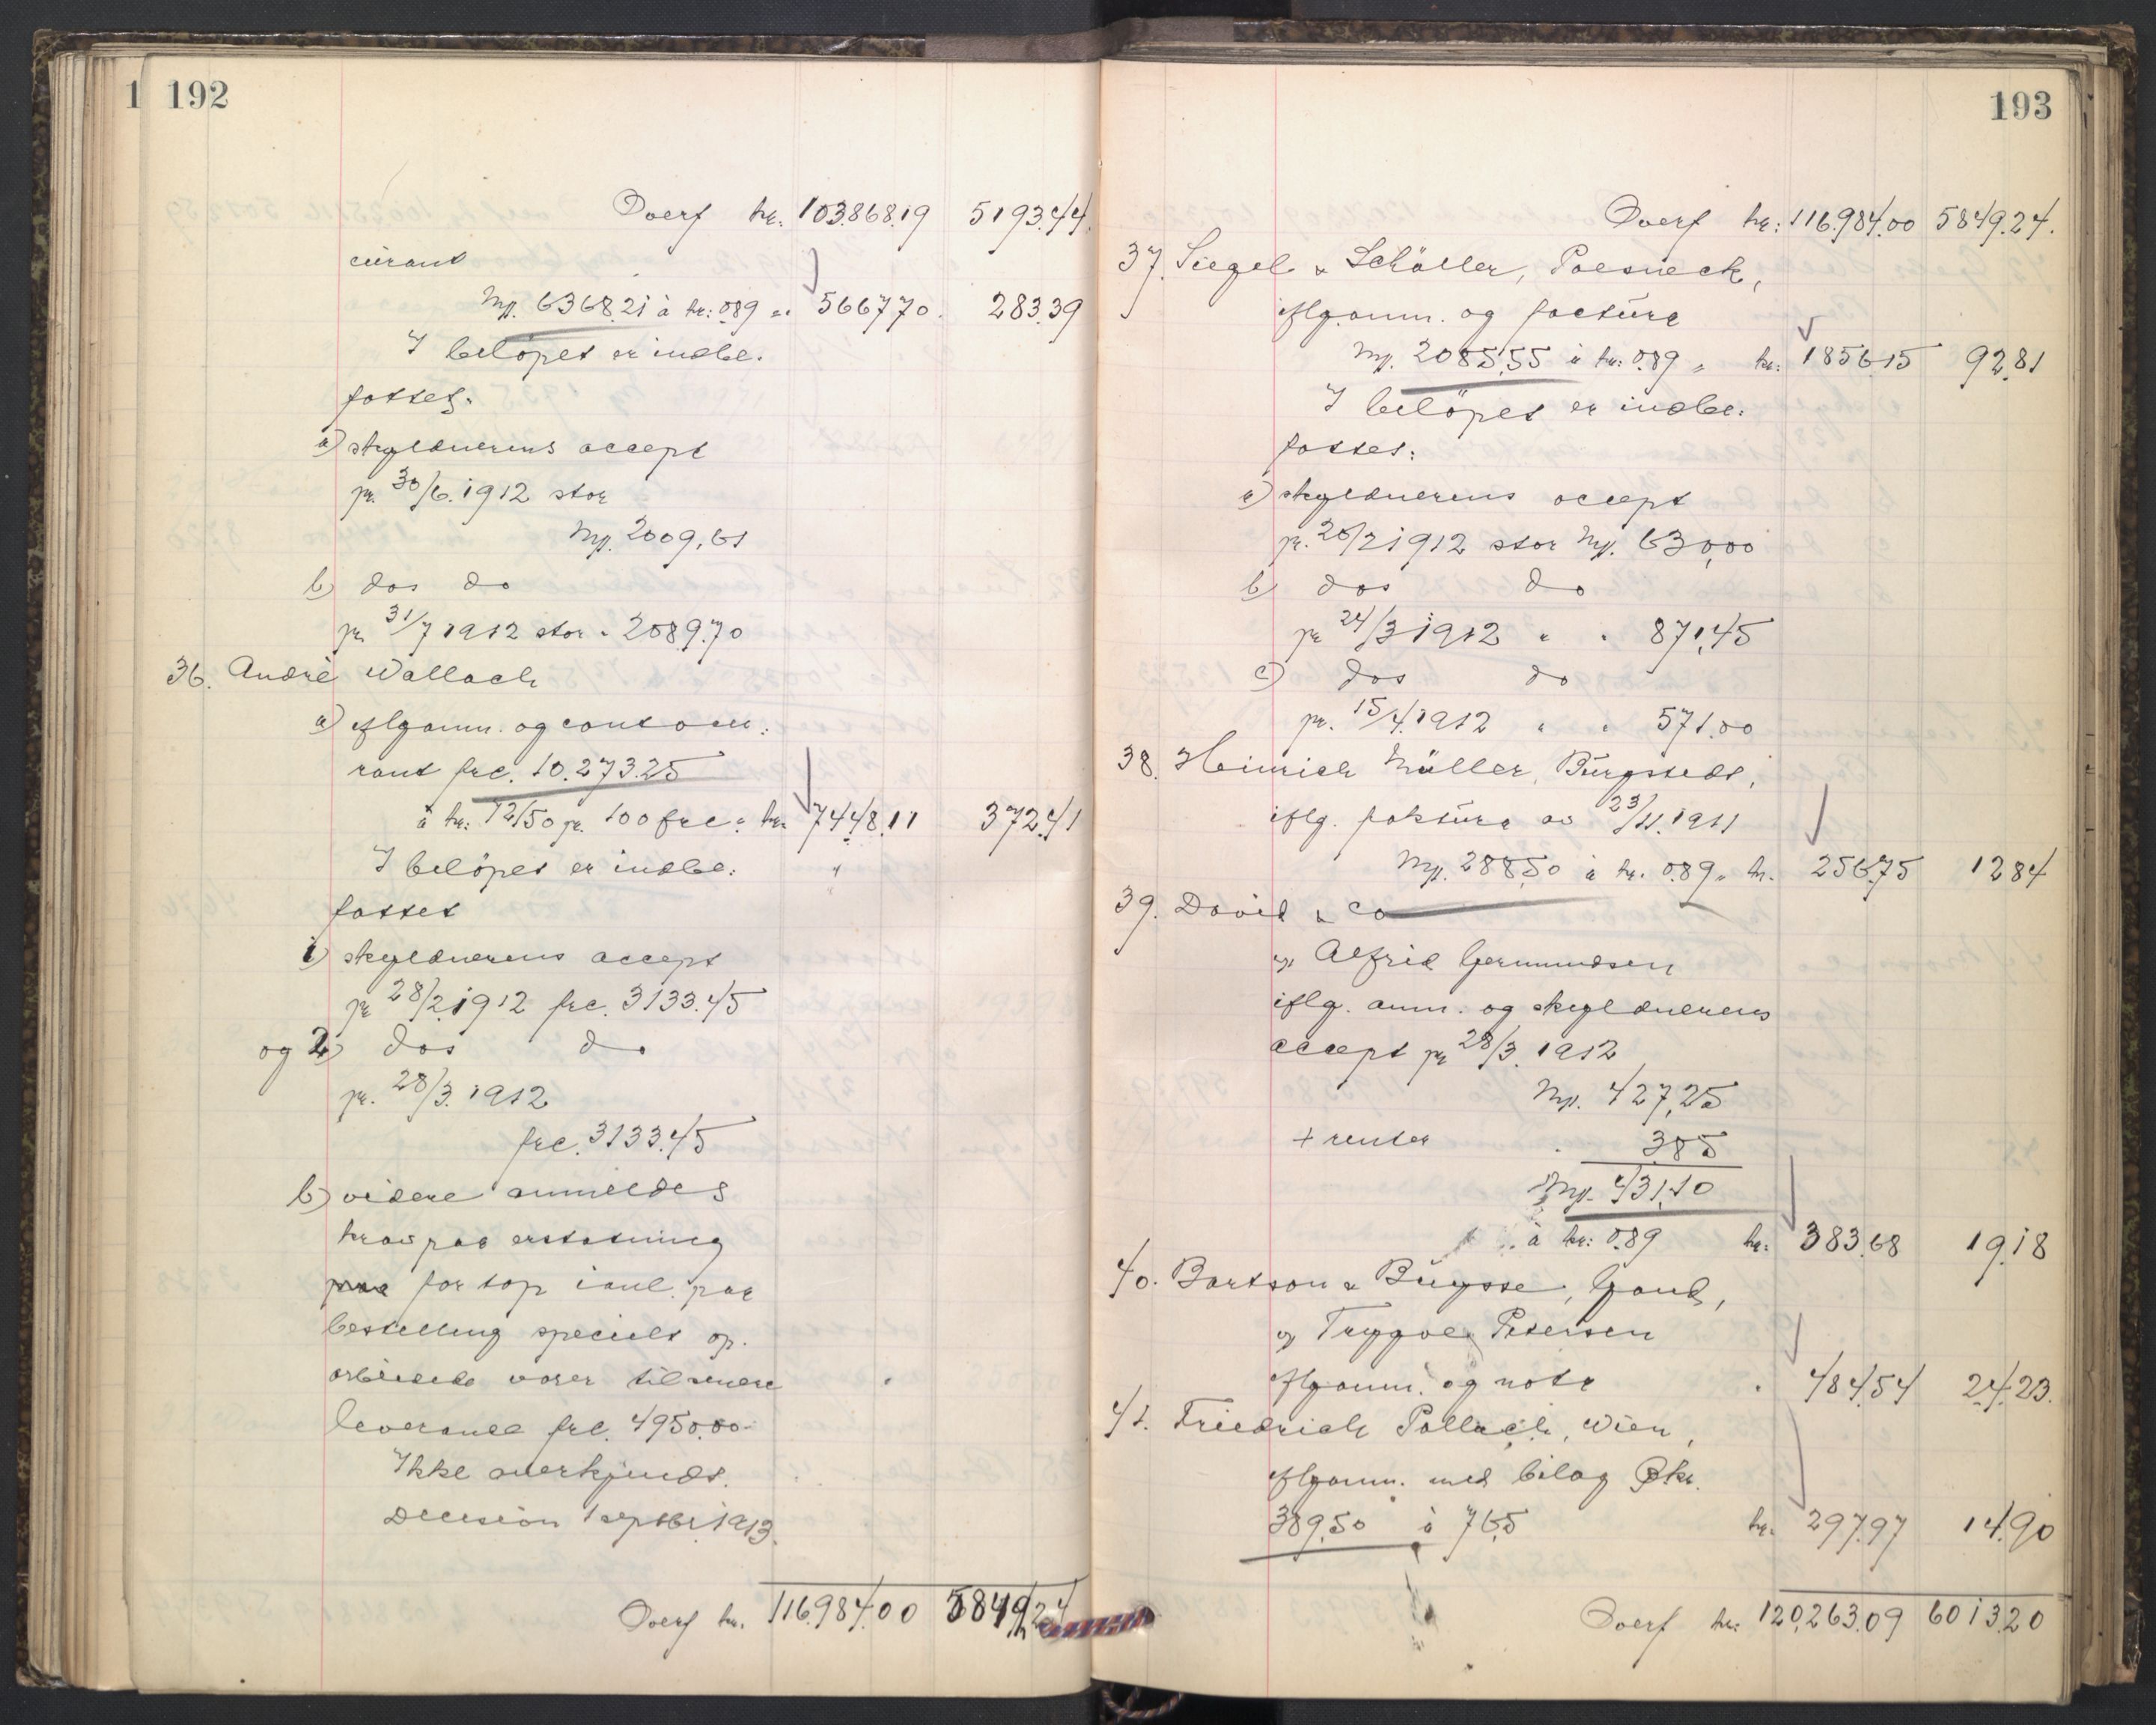 1 192
Overf kr. 103.868.19 5193.44.
curant
Mk. 6368.21 à kr: 0.89 = " 5667.70. 283.39
I beløpet er indbe-
fattet:
a) skyldnerens accept
pr. 30/6.1912 stor
Mk. 2009,61
b) das do
pr 31/7 1912 stor " 2089.70
36. André Wallach
a) iflg anm. og contocu-
rant frc. 10.273.25
à kr. 72/50 pr. 100 frc = kr. 7448.11 372.41
I beløpet er indbe-
fattet
1) skyldnerens accept
pr 28/2.1912 frc. 3133.45
og 2) das do
pr. 28/3.1912
frc. 3133.45
b) videre anmeldes
krav paa erstatning
paa for tap i anl. paa
bestilling specielt op-
arbeidede varer til senere
leverance frc. 4950.00
Ikke anerkjendt.
Decision 1 septbr. 1913.
Overf kr. 116.984.00 5849.24
193
Overf kr: 116.984.00 5849.24.
37. Siegel & Schöller, Poesneck,
iflg anm. og factura
Mk. 2085,55 à kr: 0.89 = kr: 1856.15 92.81
I beløpet er indbe-
fattet:
a) skyldnerens accept
pr. 20/2 1912 stor Mk. 630,00
b) das do
pr 24/3 1912 " " 871,45
c) das do
pr. 15/4.1912 " " 571.00
38. Heinrich Müller, Burgstedt,
iflg. faktura av 23/11.1911
Mk. 288.50 à kr. 0.89 = kr. 256.75 12.84
39. David & Co
v/ Alfred Germundsen
iflg. anm. og skyldnerens
accept pr 28/3.1912
Mk. 427,25
+ renter " 3.85
Mk. 431,10
à kr: 0.89 kr: 383.68 19.18
40. Bartson & Buysse, Gand,
v/ Trygve Petersen
iflg anm. og nota " 484.54 24.23.
41. Friedrich Pollack, Wien,
iflg anm. med bilag Økr.
389.50 à 76.5 kr. 297.97 14.90
Overf kr: 120.263.09 6013.20